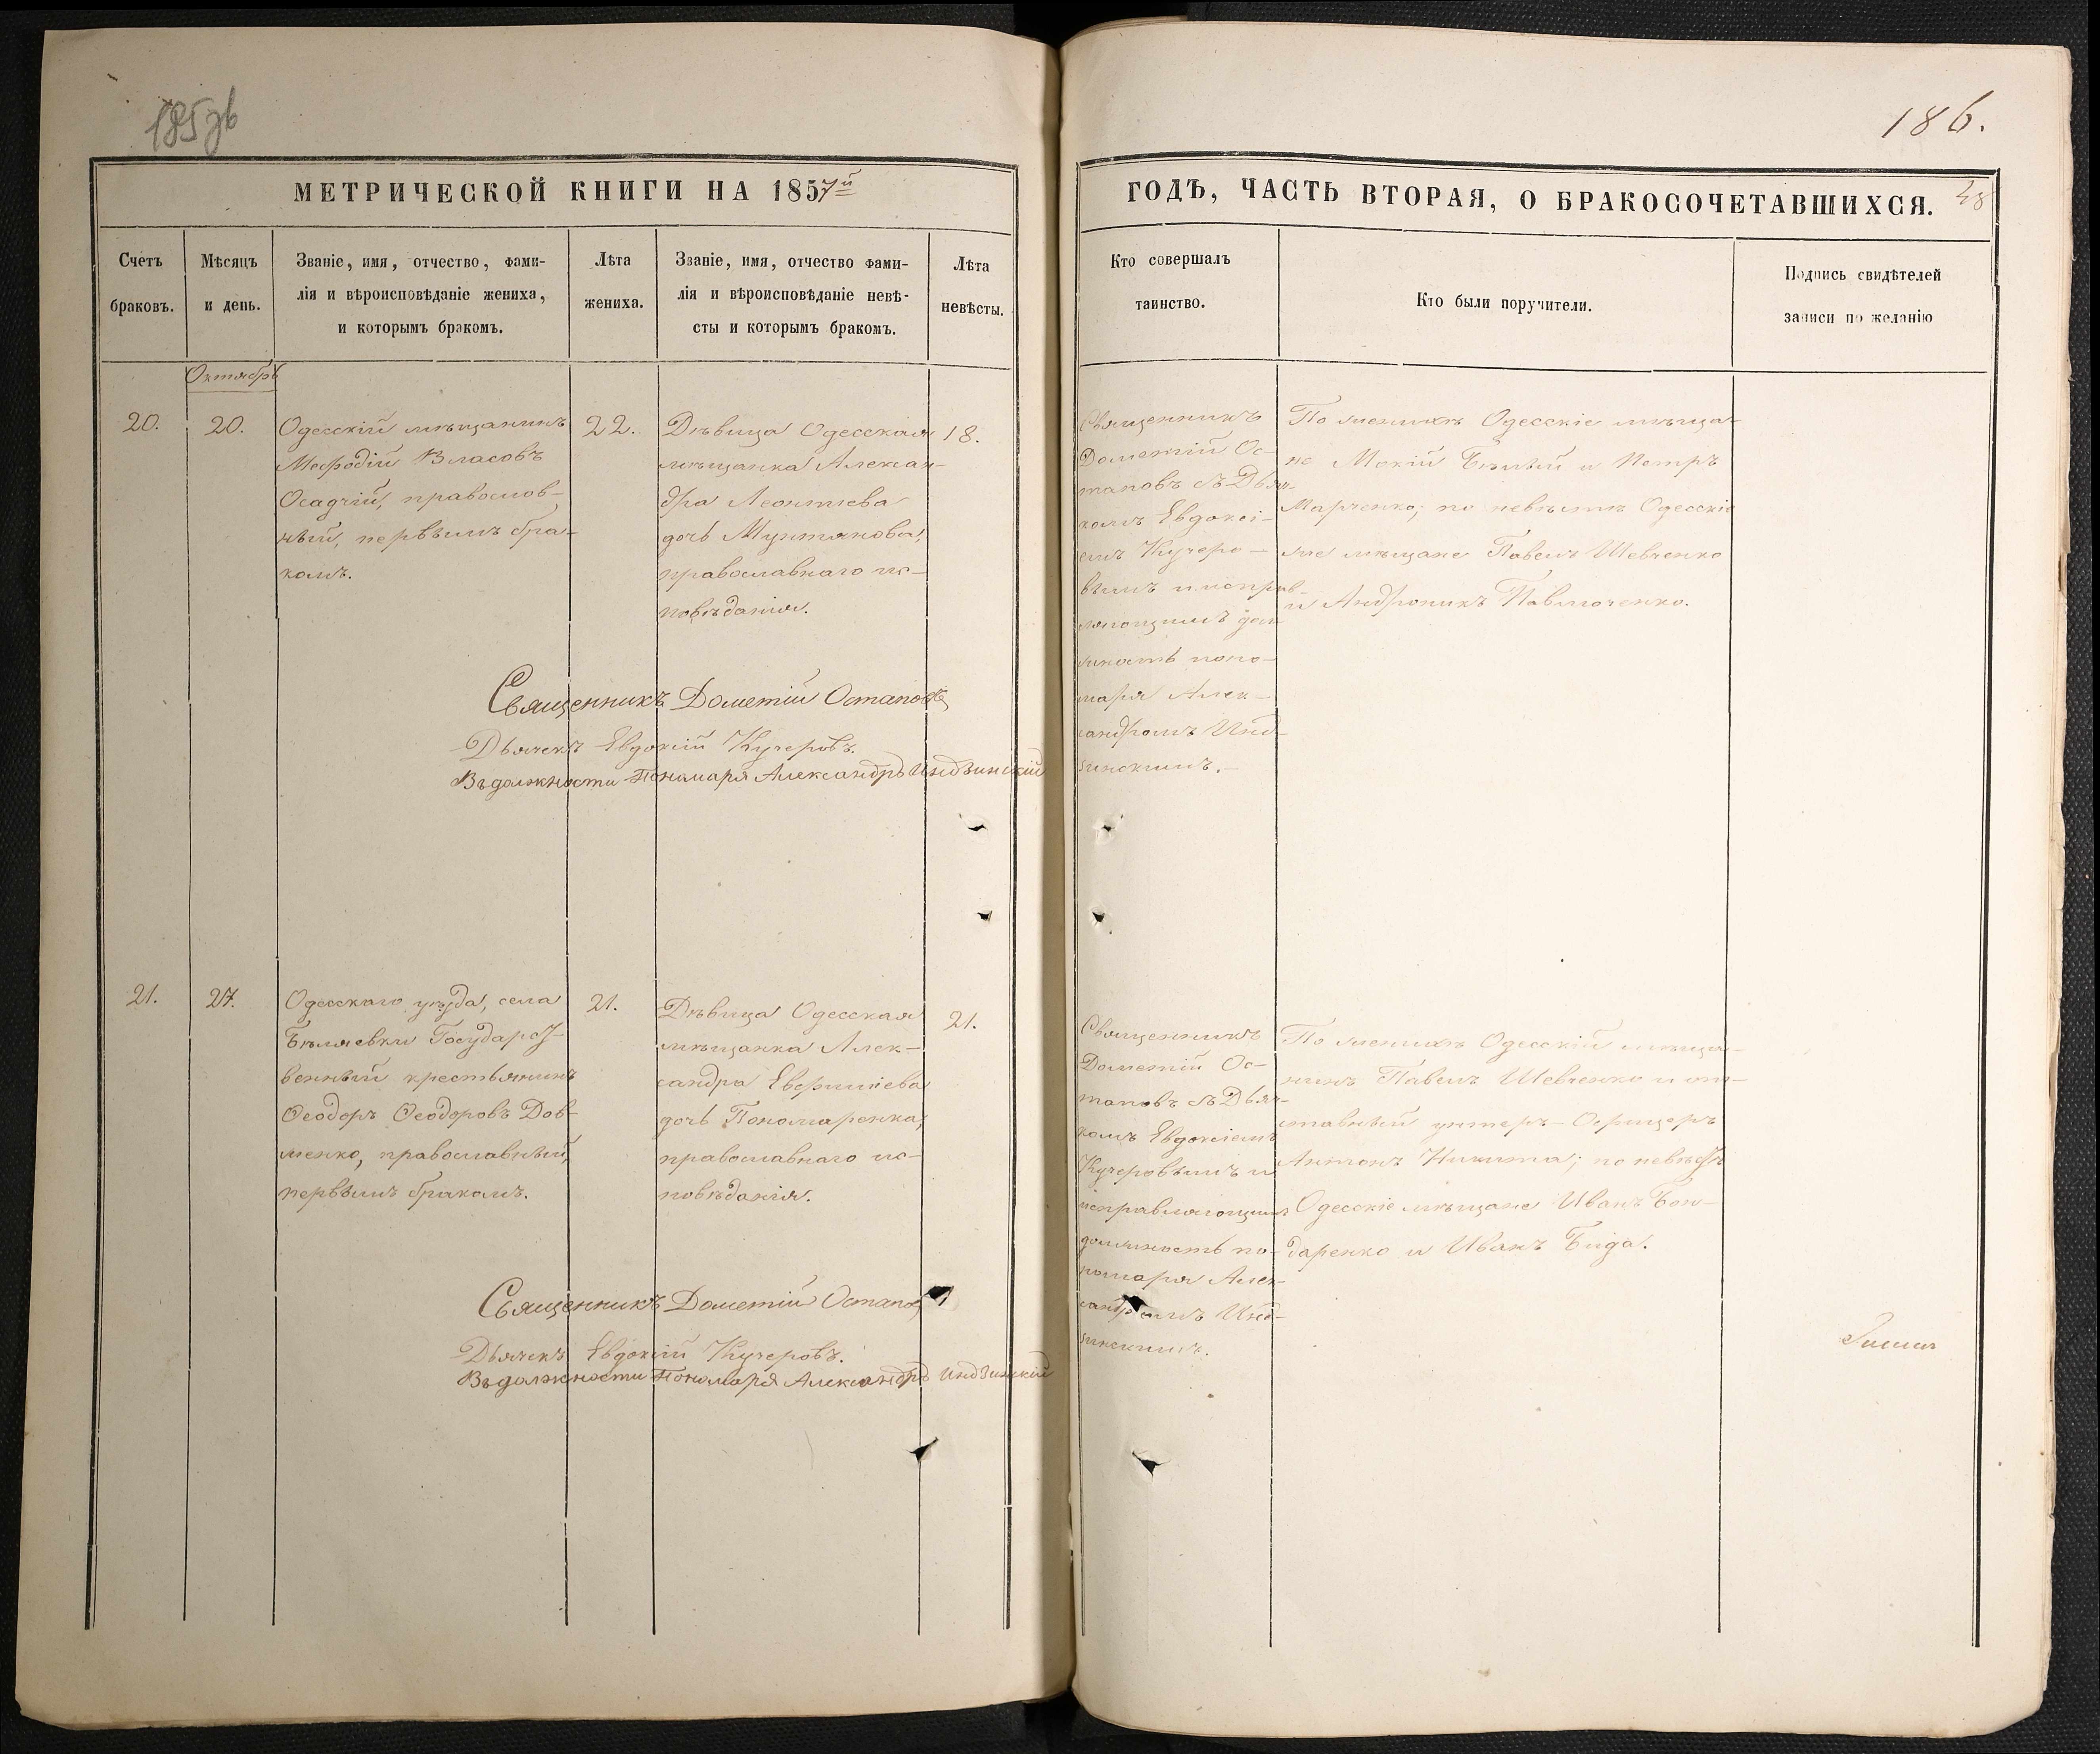 185зв
186.
МЕТРИЧЕСКОЙ КНИГИ НА 1857й
ГОДЪ, ЧАСТЬ ВТОРАЯ, О БРАКОСОЧЕТАВШИХСЯ.
Счетъ
браковъ.
Мѣсяцъ
и день.
Званіе, имя, отчество, фами-
лія и вѣроисповѣданіе жениха,
и которымъ бракомъ.
Лѣта
жениха.
Званіе, имя, отчество фами-
лія и вѣроисповѣданіе невѣ-
сты и которымъ бракомъ.
Лѣта
невѣсты.
Кто совершалъ
таинство.
Кто были поручители.
Подпись свидѣтелей
записи по желанію
Октябрь
20.
20.
Одесскій мѣщанинъ
Мефодій Власовъ
Осадчій, православ-
ный, первымъ бра-
комъ.
22.
Дѣвица Одесская
мѣщанка Алексан-
дра Леонтіева
дочь Мунтянова,
православнаго ис-
повѣданія.
18.
Священникъ
Дометій Ос-
таповъ съ Дьяч-
комъ Евдокі-
емъ Кучеро-
вымъ и исправ-
ляющимъ дол
жность поно-
маря Алек-
сандромъ Инд-
зинскимъ.-
По женихѣ Одесскіе мѣща-
не Мокій Бѣлый и Петръ
Марченко; по невѣстѣ Одесскіе
же мѣщане Павелъ Шевченко
и Андроникъ Павлюченко.
Священникъ Дометій Остаповъ
Дьячекъ Евдокій Кучеровъ.
Въ должности Пономаря Александръ Индзинскій
21.
27.
Одесскаго уѣзда, села
Бѣляевки Государст-
венный крестьянинъ
Ѳеодоръ Ѳеодоровъ Дов-
женко, православный,
первымъ бракомъ.
21.
Дѣвица Одесская
мѣщанка Алек-
сандра Евфиміева
дочь Пономаренка,
православнаго ис-
повѣданія.
21.
Священникъ
Дометій Ос-
таповъ съ Дьяч-
комъ Евдокіемъ
Кучеровымъ и
исправляющимъ
должность по-
номаря Алек-
сандромъ Инд-
зинскимъ.
По женихѣ Одесскій мѣща-
нинъ Павелъ Шевченко и от-
ставный унтеръ-Офицеръ
Антонъ Никита; по невѣстѣ
Одесскіе мѣщане Иванъ Бон-
даренко и Иванъ Бида.
Священникъ Дометій Остаповъ
Дьячекъ Евдокій Кучеровъ.
Въ должности Пономаря Александръ Индзинскій